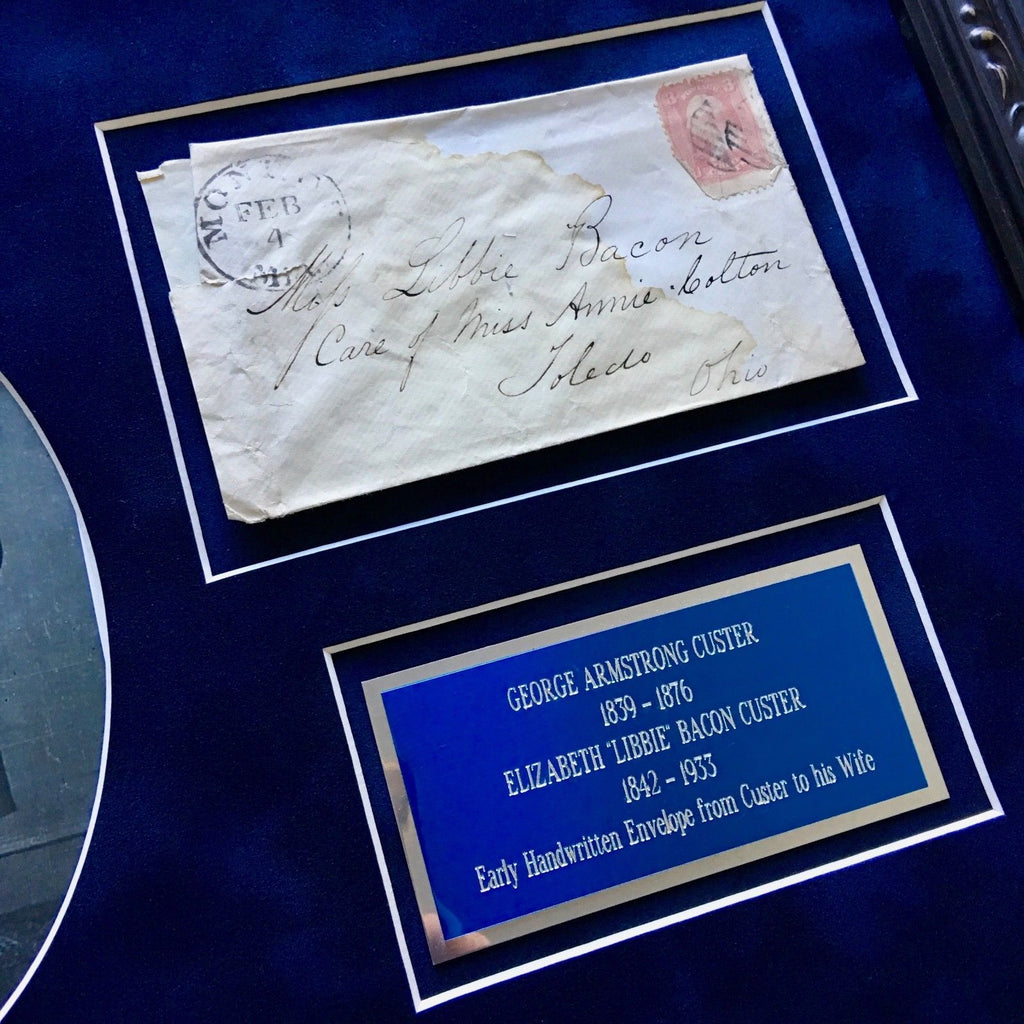 MON
FEB
4
Miss Libbie Bacon
Care of Miss Annie Colton
Toledo Ohio
GEORGE ARMSTRONG CUSTER
1839 - 1876
ELIZABETH "LIBBIE" BACON CUSTER
1842 - 1933
Early Handwritten Envelope from Custer to his Wife